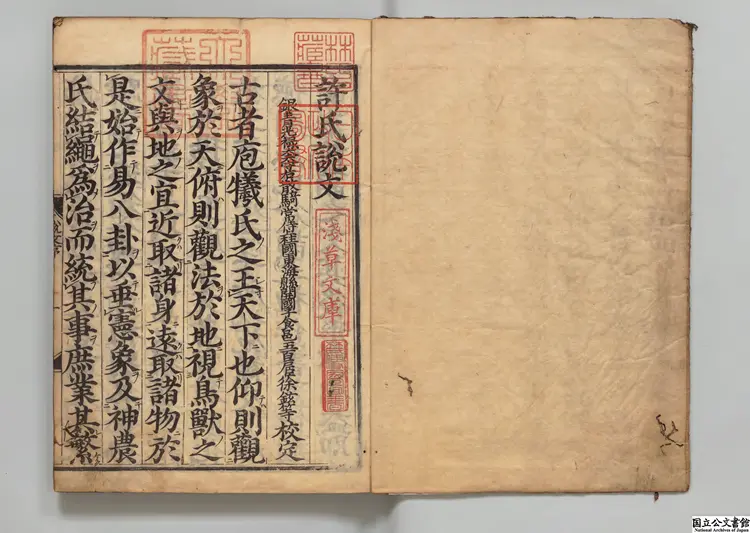 許氏說文
銀青光祿大夫守右散騎常侍上柱國東海縣開國子食邑五百戶徐鉉等校定
古者庖犧氏之王天下也仰則觀
象於天俯則觀法於地視鳥獸之
文與地之宜近取諸身遠取諸物於
是始作易八卦以垂憲象及神農
氏結繩爲治而統其事庶業其繁
淺草文庫
国立公文書館
National Archives of Japan